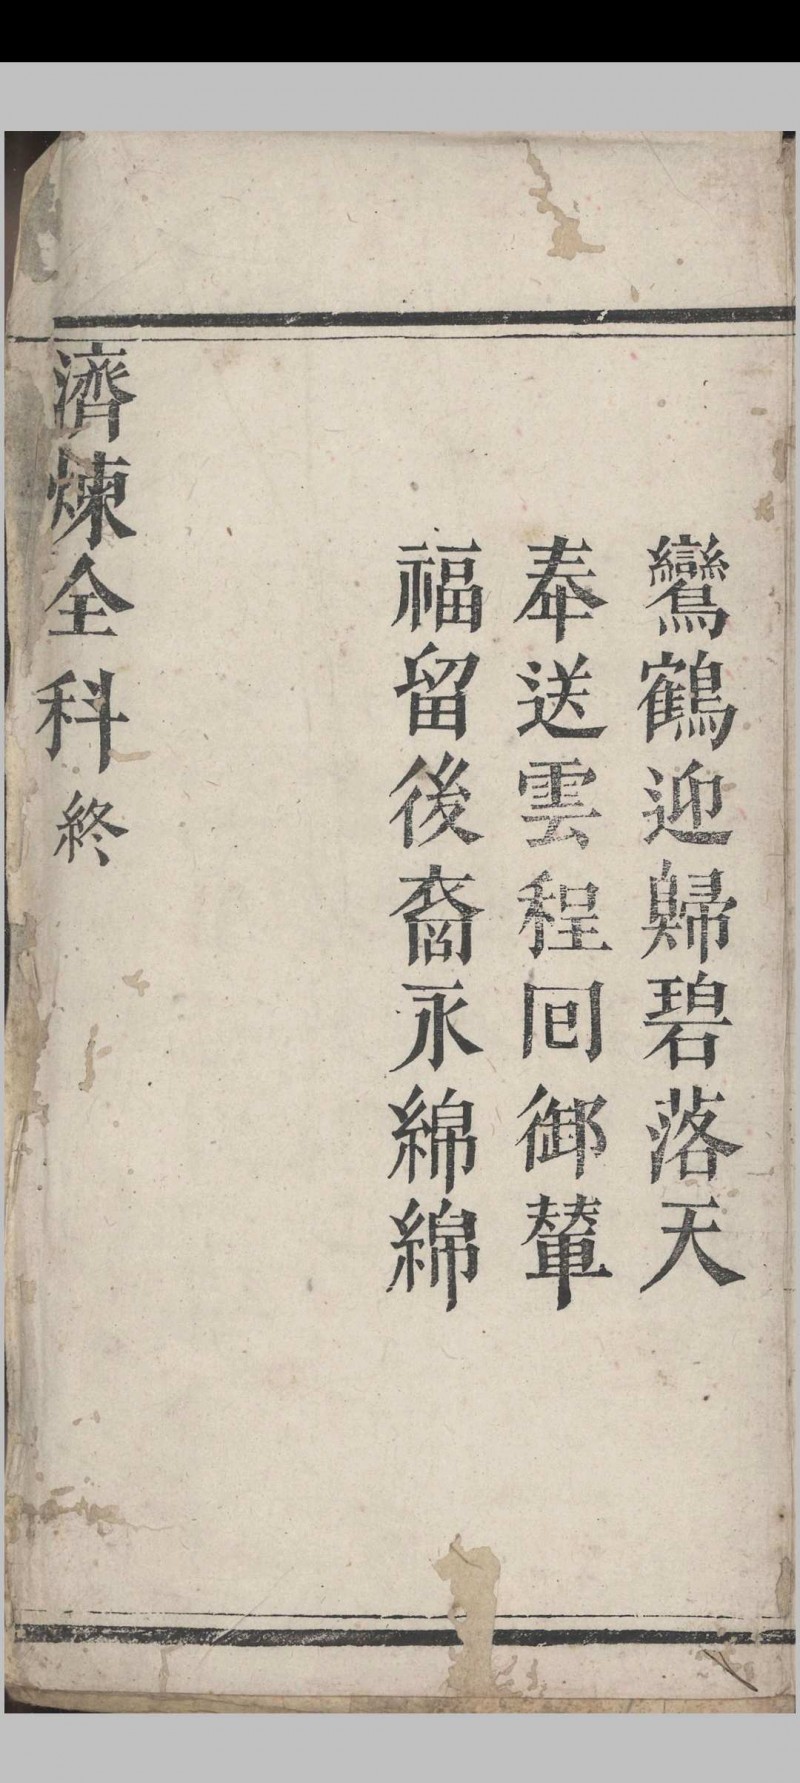 鸞鶴迎歸碧落天
奉送雲程回御輦
福留後裔永綿綿
濟煉全科終